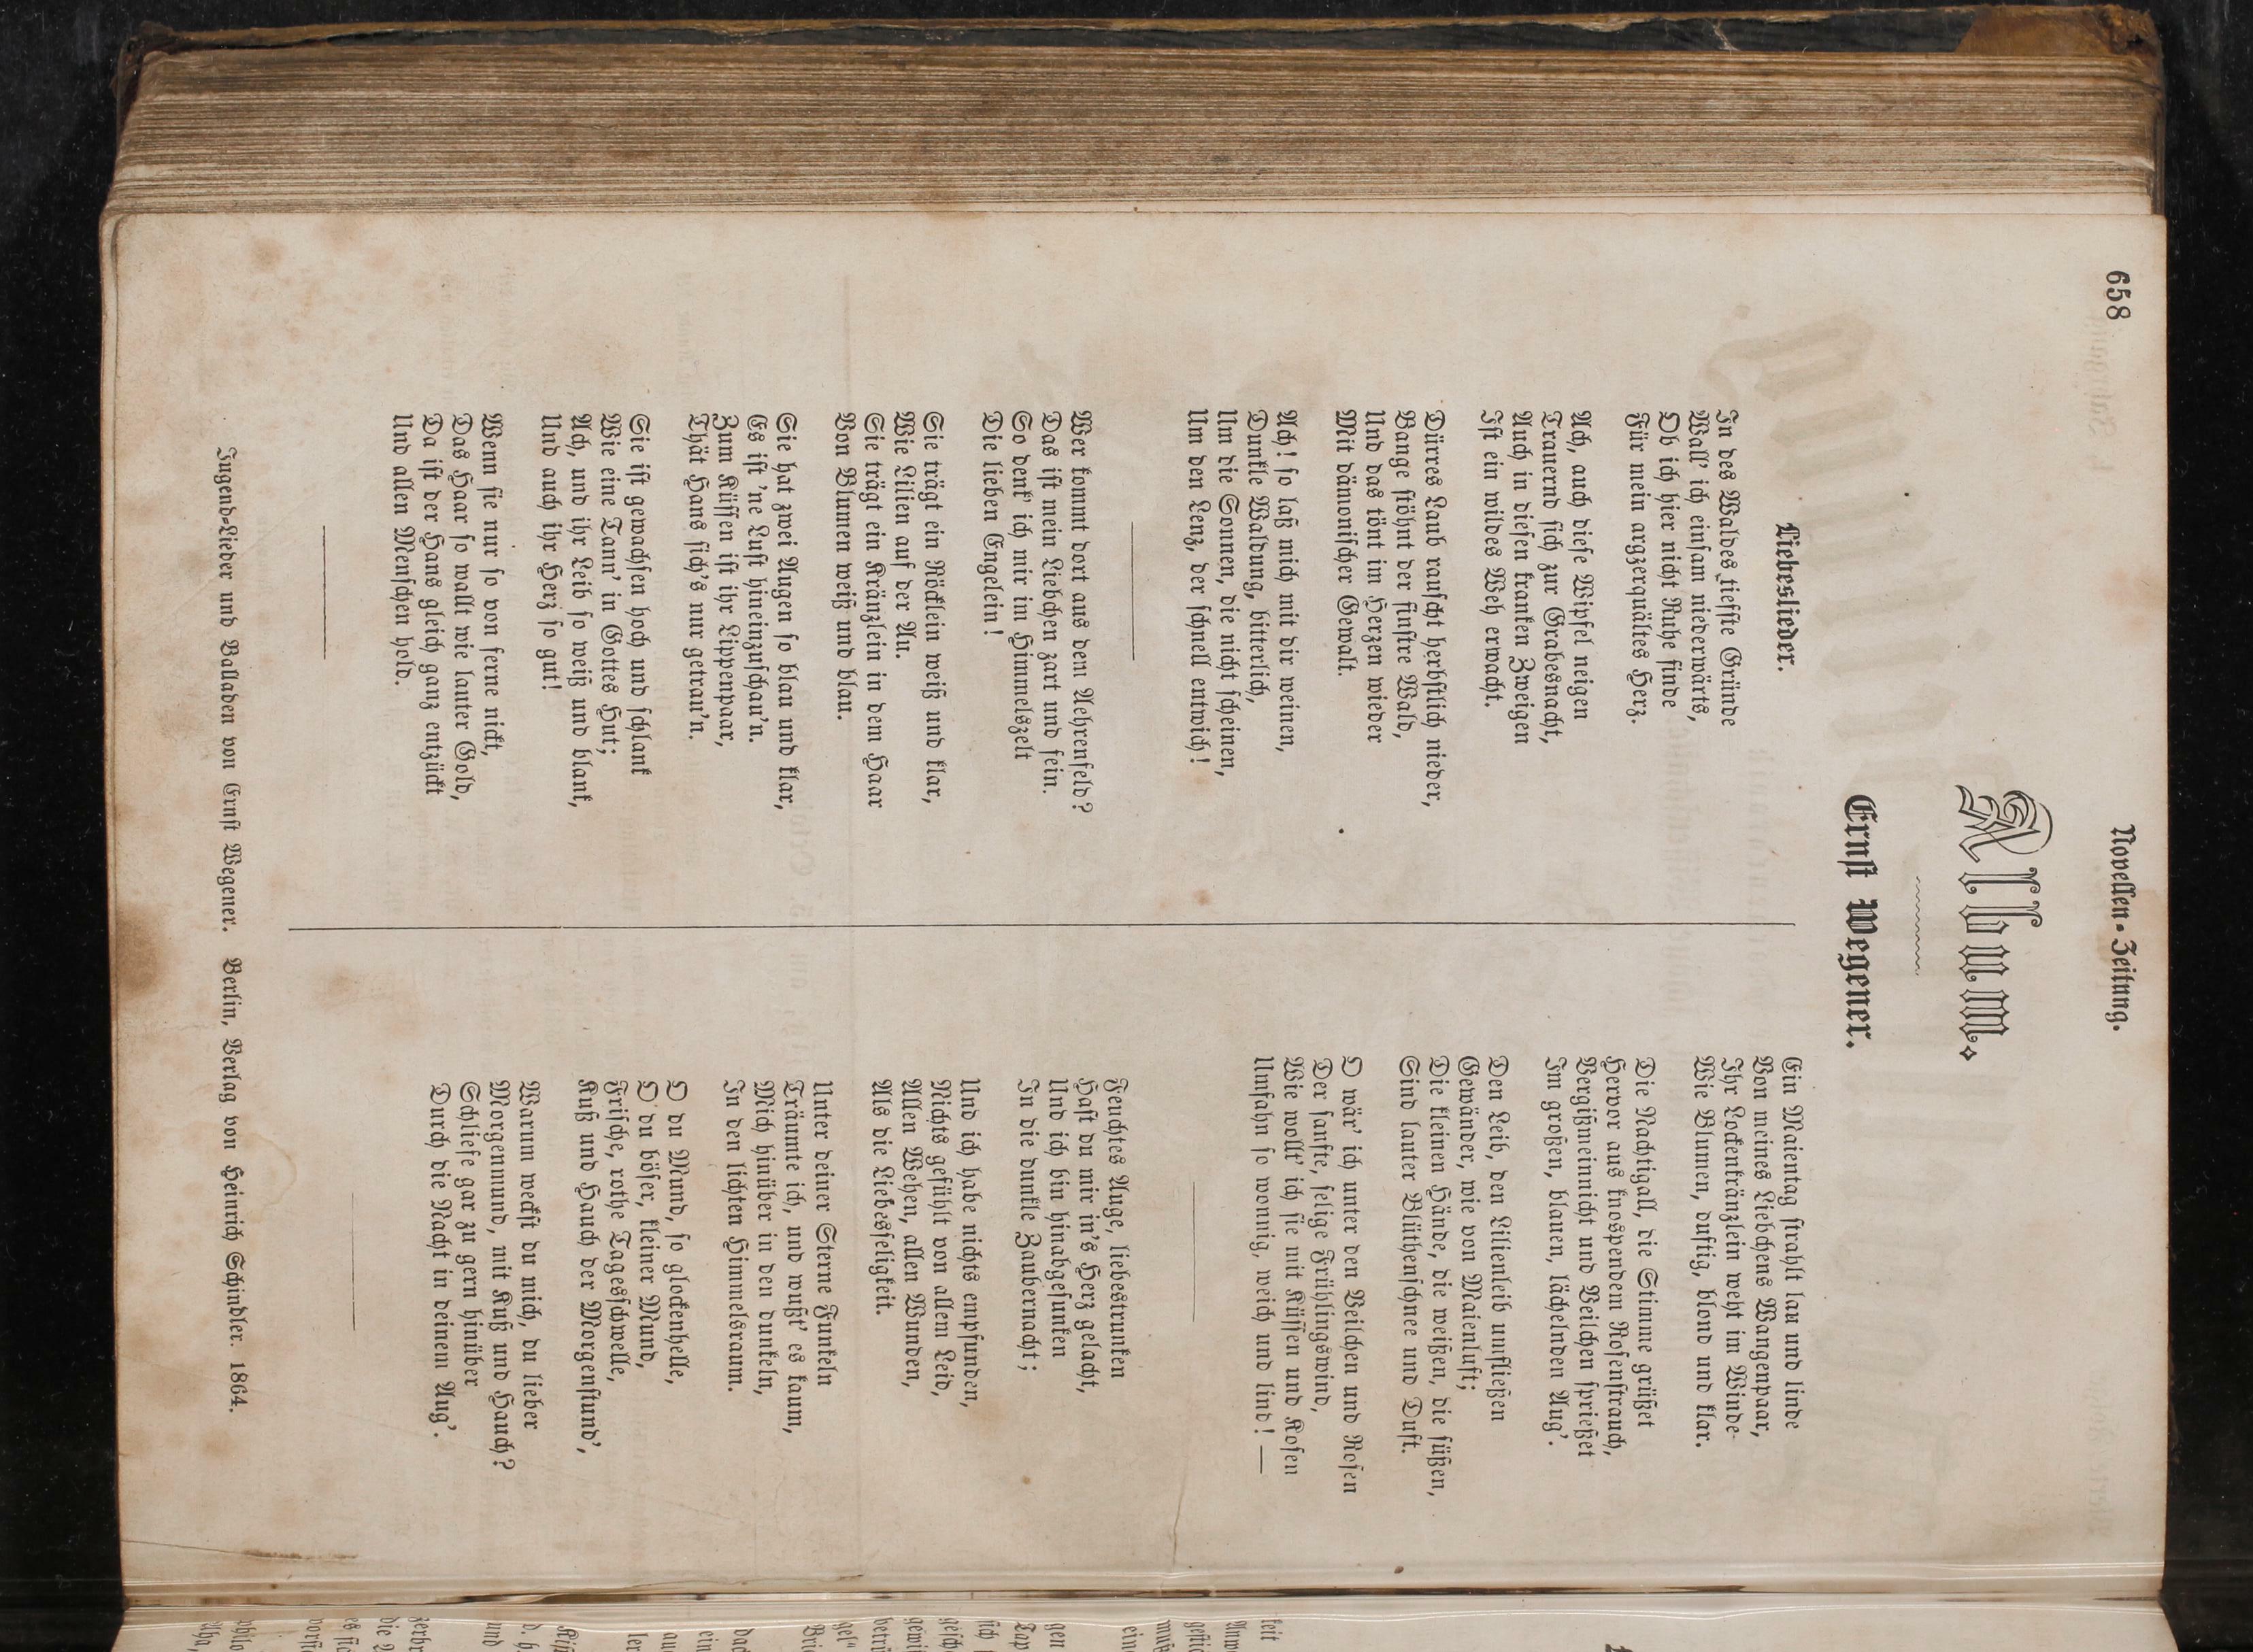 658
Novellen-Zeitung.
Album.
Ernst Wegener.
Liebeslieder.
In des Waldes tiefste Gründe
Wall' ich einsam niederwärts,
Ob ich hier nicht Ruhe finde
Für mein argzerquältes Herz.
Ach, auch diese Wipfel neigen
Trauernd sich zur Grabesnacht,
Auch in diesen kranken Zweigen
Ist ein wildes Weh erwacht.
Dürres Laub rauscht herbstlich nieder,
Bange stöhnt der finstre Wald,
Und das tönt im Herzen wieder
Mit dämonischer Gewalt.
Ach! so laß mich mit dir weinen,
Dunkle Waldung, bitterlich,
Um die Sonnen, die nicht scheinen,
Um den Lenz, der schnell entwich!
Wer kommt dort aus dem Aehrenfeld?
Das ist mein Liebchen zart und fein.
So denk' ich mir im Himmelszelt
Die lieben Engelein!
Sie trägt ein Röcklein weiß und klar,
Wie Lilien auf der Au.
Sie trägt ein Kränzlein in dem Haar
Von Blumen weiß und blau.
Sie hat zwei Augen so blau und klar,
Es ist 'ne Lust hineinzuschau'n.
Zum Küssen ist ihr Lippenpaar,
Thät Hans sich's nur getrau'n.
Sie ist gewachsen hoch und schlank
Wie eine Tann' in Gottes Hut;
Ach, und ihr Leib so weiß und blank,
Und auch ihr Herz so gut!
Wenn sie nur so von ferne nickt,
Das Haar so wallt wie lauter Gold,
Da ist der Hans gleich ganz entzückt
Und allen Menschen hold.
Ein Maientag strahlt lau und linde
Von meines Liebchens Wangenpaar,
Ihr Lockenkränzlein weht im Winde
Wie Blumen, duftig, blond und klar.
Die Nachtigall, die Stimme grüßet
Hervor aus knospendem Rosenstrauch,
Vergißmeinnicht und Veilchen sprießet
Im großen, blauen, lächelnden Aug'.
Den Leib, den Lilienleib umfließen
Gewänder, wie von Maienluft;
Die kleinen Hände, die weißen, die süßen,
Sind lauter Blüthenschnee und Duft.
O wär' ich unter den Veilchen und Rosen
Der sanfte, selige Frühlingswind,
Wie wollt' ich sie mit Küssen und Kosen
Umfahn so wonnig, weich und lind! —
Feuchtes Auge, liebestrunken
Hast du mir in's Herz gelacht,
Und ich bin hinabgesunken
In die dunkle Zaubernacht;
Und ich habe nichts empfunden,
Nichts gefühlt von allem Leid,
Allen Wehen, allen Wunden,
Als die Liebesseligkeit.
Unter deiner Sterne Funkeln
Träumte ich, und wußt' es kaum,
Mich hinüber in den dunkeln,
In den lichten Himmelsraum.
O du Mund, so glockenhelle,
O du böser, kleiner Mund,
Frische, rothe Tagesschwelle,
Kuß und Hauch der Morgenstund',
Warum weckst du mich, du lieber
Morgenmund, mit Kuß und Hauch?
Schliefe gar zu gern hinüber
Durch die Nacht in deinem Aug'.
Jugend-Lieder und Balladen von Ernst Wegener. Berlin, Verlag von Heinrich Schindler. 1864.